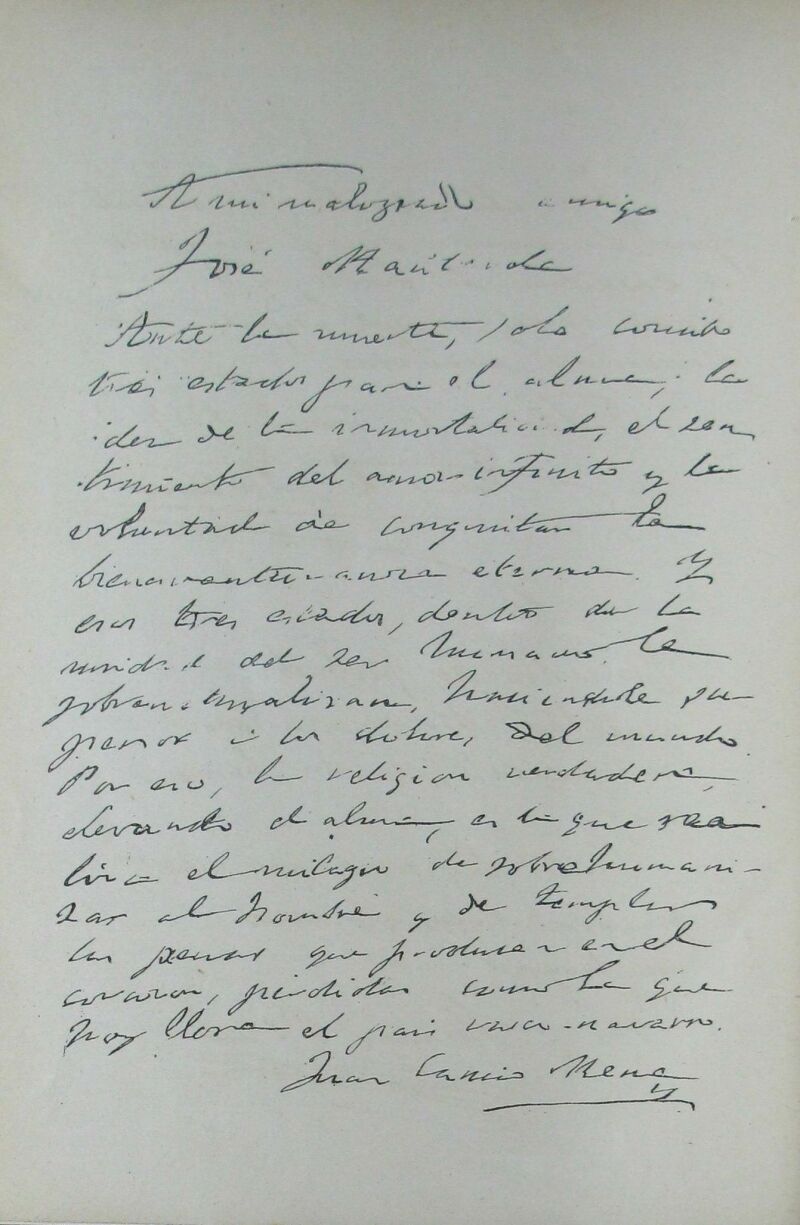 A mi malogrado amigo
José Manterola
Ante la muerte, solo concibo
tres estados para el alma; la
idea de la inmortalidad, el sen
timiento del amor infinito y la
voluntad de conquistar la
bienaventuranza eterna. Y
esos tres estados, dentro de la
unidad del ser humano le
sobrenaturalizan, haciéndole su-
perior a los dolores del mundo.
Por eso, la religion verdadera,
elevando el alma, es la que rea
liza el milagro de sobrehumani-
zar al hombre y de templar
las penas que producen en el
corazon, pérdidas como la que
hoy llora el pais vasco-navarro.
Juan Cancio Mena